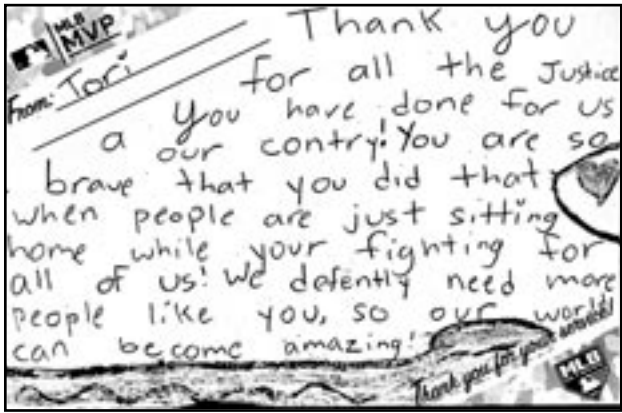 MLB
MVP
From: Tori
Thank you
for all the Justice
You have done for us
a our contry! You are so
brave that you did that
when people are just sitting
home while your fighting for
all of us! We defently need more
people like you, so our world
can become amazing!
Thank you for your service!
MLB